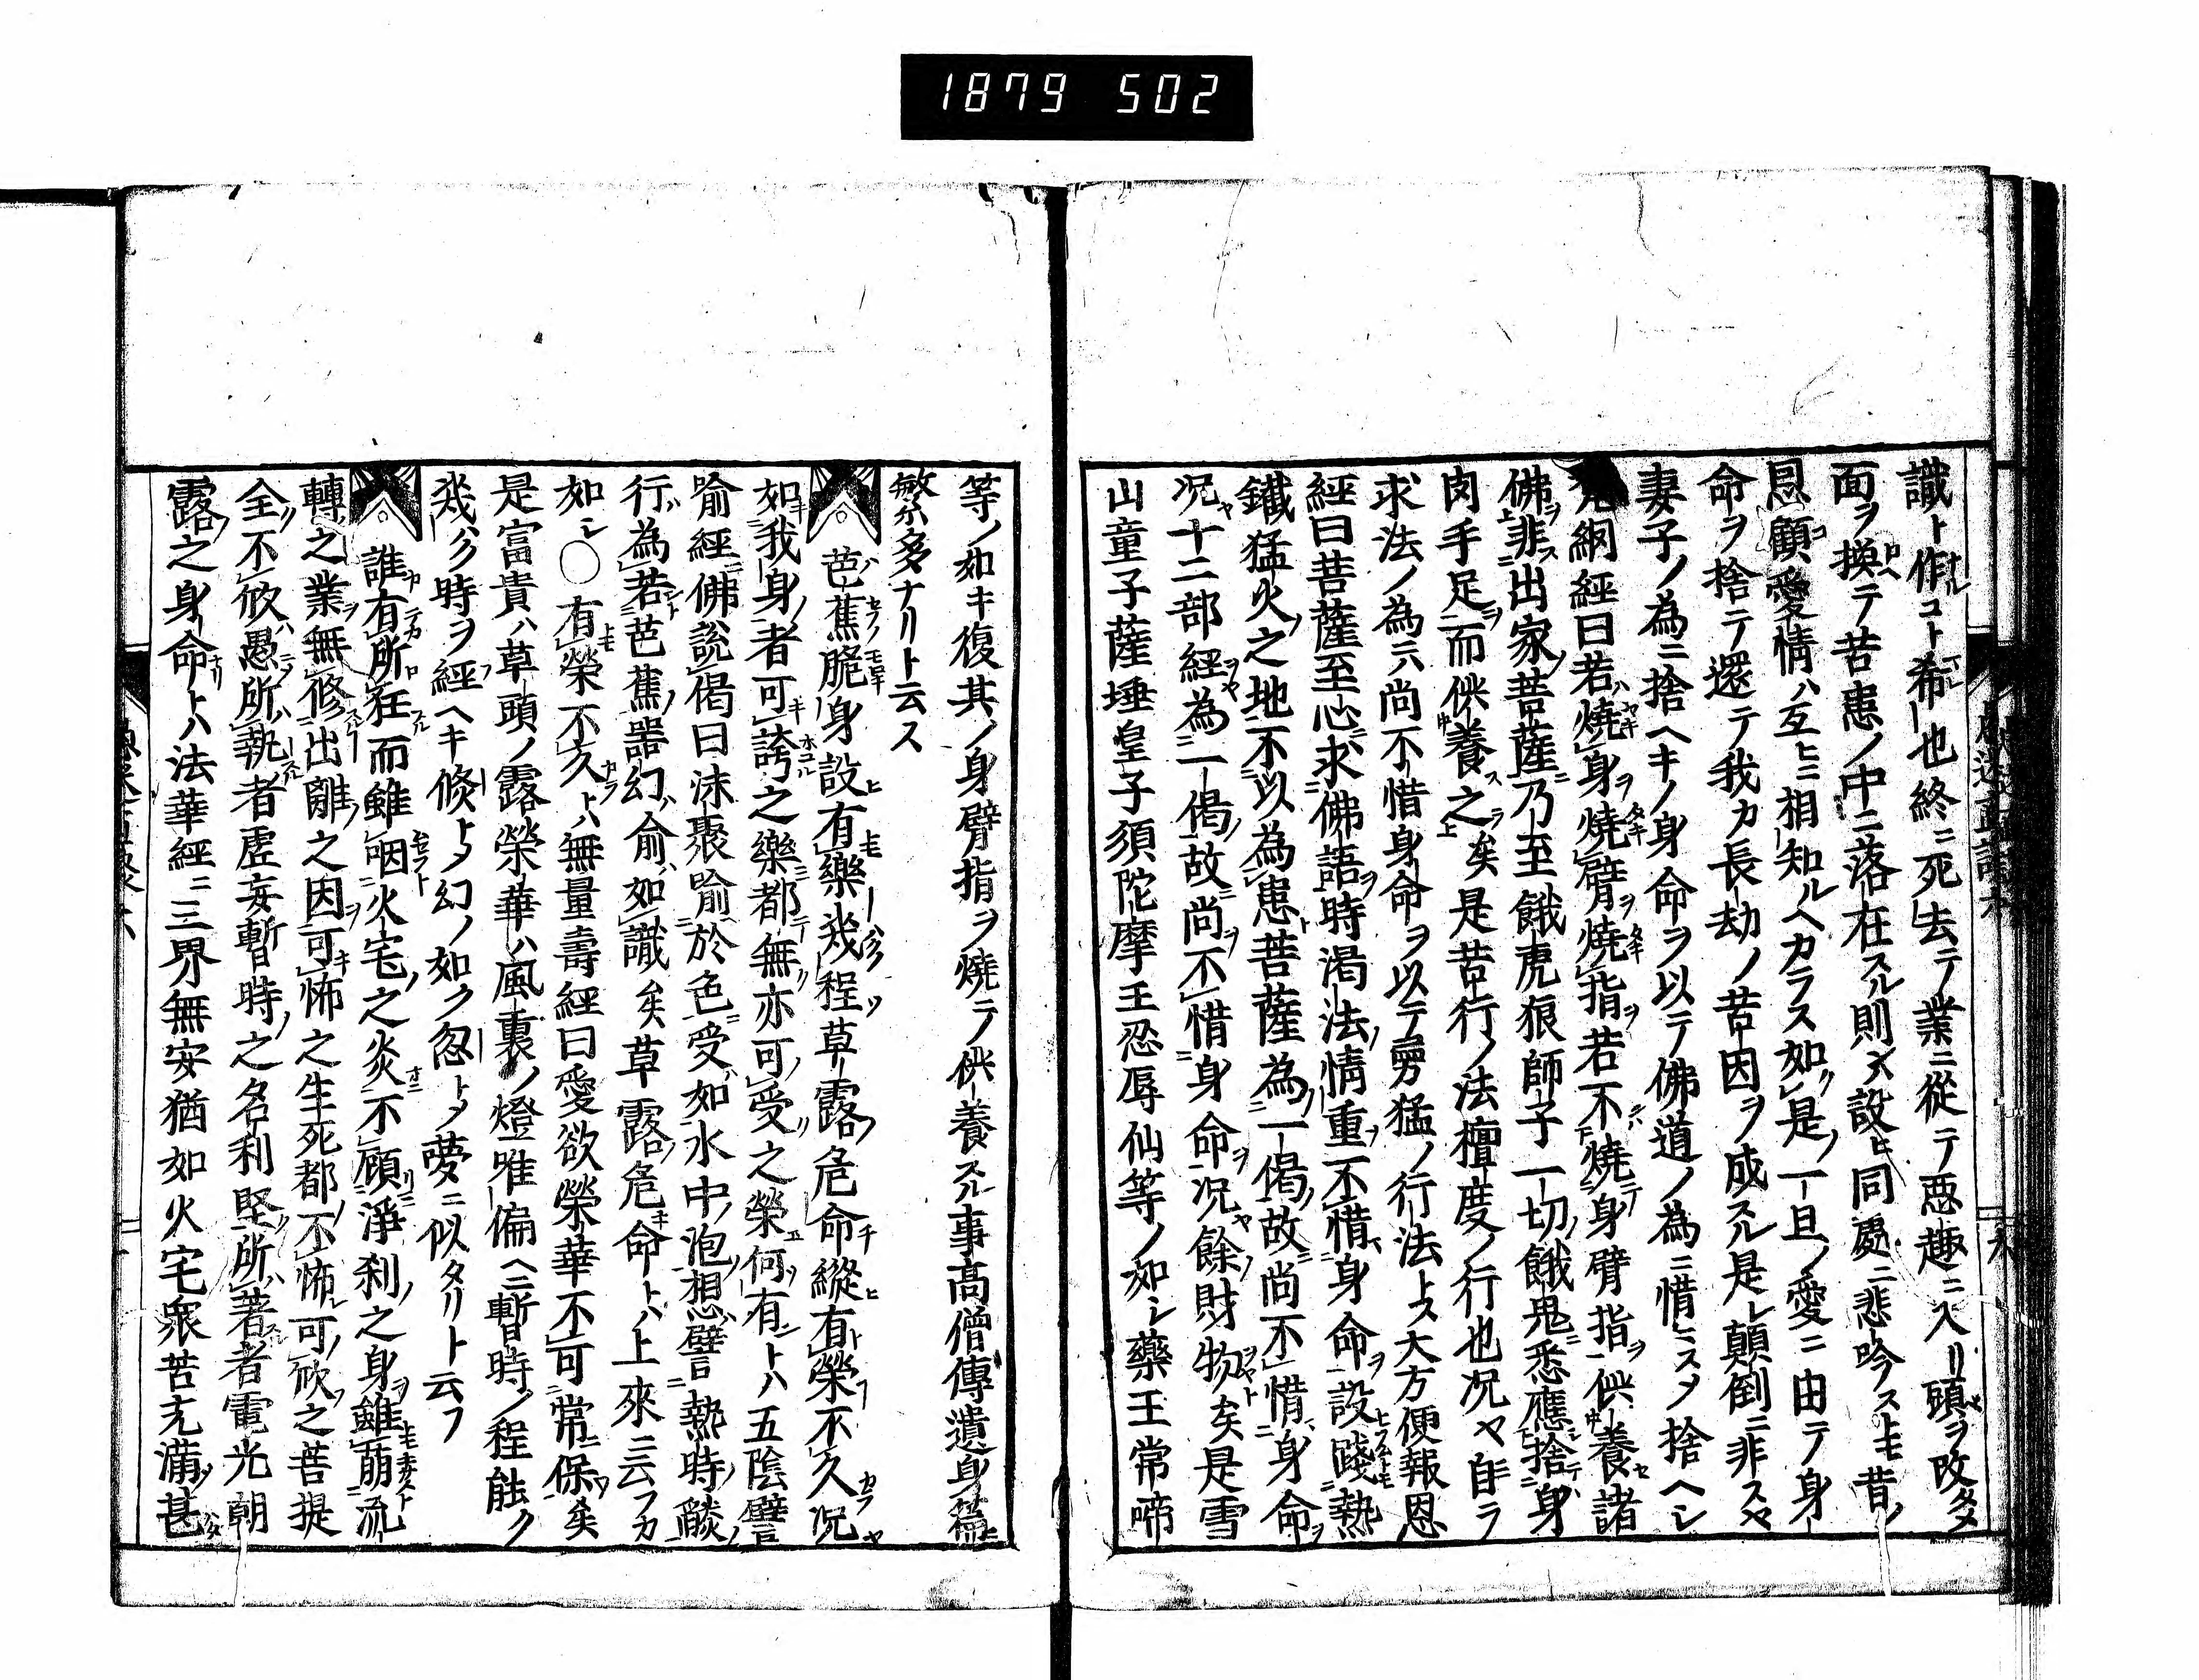 1879 502
識ト作コト希也終ニ死去テ業ニ從テ惡趣ニ入リ頭ヲ改タメ
面ヲ換テ苦患ノ中ニ落在スル則メ設ヒ同處ニ悲吟ストモ昔ノ
恩顧愛情ハ互ヒニ相知ルヘカラス如是一旦ノ愛ニ由テ身
命ヲ捨テ還テ我カ長劫ノ苦因ヲ成スル是レ顛倒ニ非スヤ
妻子ノ為ニ捨ヘキノ身命ヲ以テ佛道ノ為ニ惜ミスメ捨ヘシ
網經曰若燒身燒臂燒指若不燒身臂指供養諸
佛非出家菩薩乃至餓虎狼師子一切餓鬼悉應捨身
肉手足而供養之矣是苦行ノ法檀度ノ行也況ヤ自ラ
求法ノ為ニハ尚不惜身命ヲ以テ勇猛ノ行法トス大方便報恩
經曰菩薩至心求佛語時渴法情重不惜身命設踐熱
鐵猛火之地不以為患菩薩為一偈故尚不惜身命
況十二部經為一偈故尚不惜身命況餘財物矣是雪
山童子薩埵皇子須陀摩王忍辱仙等ノ如シ藥王常啼
等ノ如キ復其ノ身臂指ヲ燒テ供養スル事高僧傳遺身篇
繁多ナリト云ス
芭蕉脆身設有樂幾程草露危命縱有榮不久況
如我身者可誇之樂都無亦可受之榮何有トハ五陰譬
喻經佛說偈曰沫聚喻於色受如水中泡想譬熱時𦦨
行為若芭蕉噐幻喻如識矣草露危命トハ上來ニ云フカ
如シ○有榮不久トハ無量壽經曰愛欲榮華不可常保矣
是富貴ハ草頭ノ露榮華ハ風裏ノ燈唯偏ヘニ暫時ノ程能ク
幾ハク時ヲ經ヘキ倏トメ幻ノ如ク忽トメ夢ニ似タリト云フ
誰有所狂而雖咽火宅之炎不顧淨刹之身雖萠流
轉之業無修出離之因可怖之生死都不怖可欣之菩提
全不欣愚所執者虛妄暫時之名利堅所著者電光朝
露之身命トハ法華經ニ三界無安猶如火宅衆苦充滿甚